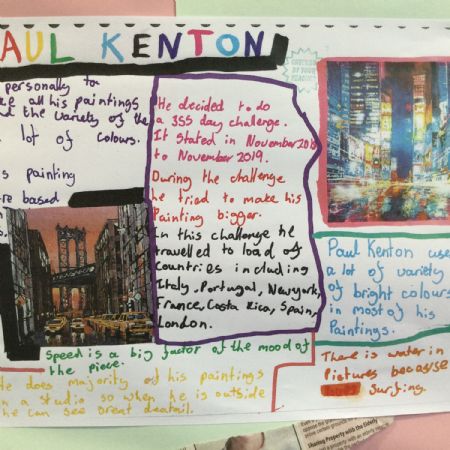 PAUL KENTON
personally to
all his paintings
the variety of the
lot of colours.
painting
based
He decided to do
a 355 day challenge.
It stated in November
to November 2019.
During the challenge
he triod to make his
Painting bigger.
In this challenge he
travelled to load of
Countries including
Italy, Portugal, Newyork,
France, Costa Rico, Spain,
London.
Paul Kenton use
a lot of variety
of bright colours
in most of his
Paintings.
Speed is a big factor of the mood of
the piece.
There is water in
Pictures becasse
Surfing.
He does majority of his paintings
in a studio so when he is outside
he can see Great
Sharing Property with the Elderly